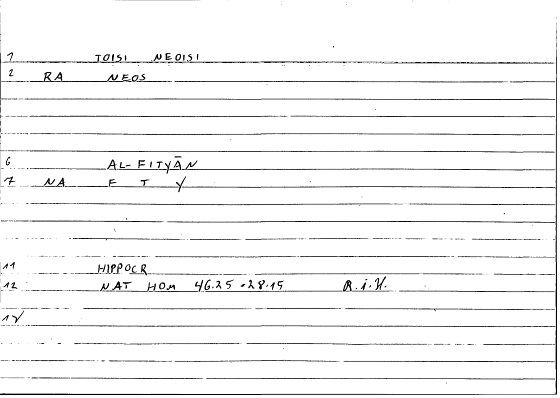 1 TOISI NEOISI
2 RA NEOS
6 AL-FITYĀN
7 NA F T Y
11 HIPPOCR
12 NAT HOM 46.25 - 28.15 R.i.H.